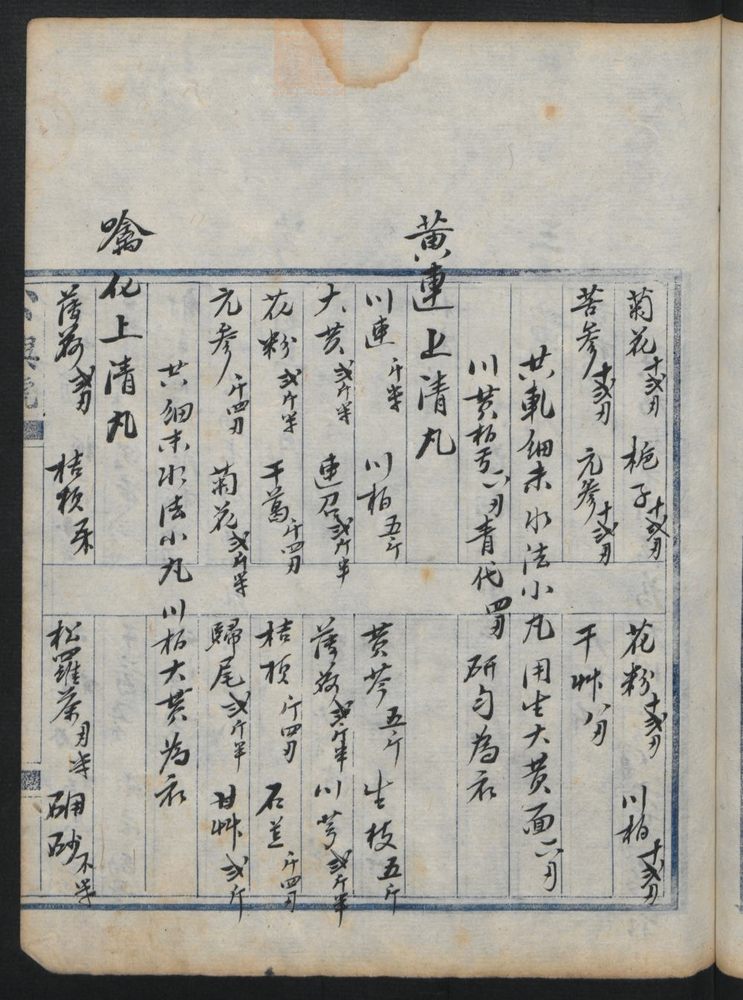 菊花十弍刃　梔子十弍刃　花粉十弍刃　川柏十弍刃
苦参十弍刃　元参十弍刃　干艸八刃
共軋細末水法小丸用生大黄面六刃
川黄柏面六刃青代四刃　研匀為衣
黄連上清丸
川連斤半　川柏五斤　黄芩五斤　生枝五斤
大黄弍斤半　連召弍斤半　薄荷弍斤半　川芎弍斤半
花粉弍斤半　干葛斤四刃　桔梗斤四刃　石羔斤四刃
元参斤四刃　菊花弍斤半　歸尾弍斤半　甘艸弍斤
共細末水法小丸川柏大黄為衣
噙化上清丸
薄荷弍刃　桔梗　松羅茶刃半　硼砂